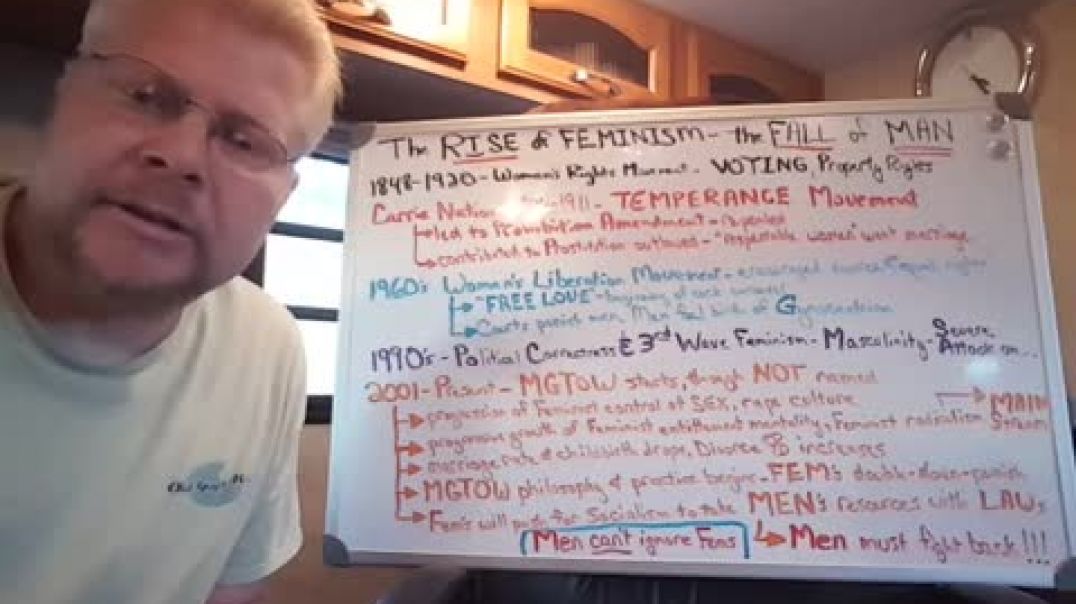 The RISE of FEMINISM - the FALL of MAN
1848-1920 - Women's Rights Movement - VOTING, Property Rights
Carrie Nation -1911 - TEMPERANCE Movement
led to Prohibition Amendment - repealed
contributed to Prostitution outlawed - "respectable women" want marriage
1960's Woman's Liberation Movement - encouraged divorce, equal rights
"FREE LOVE" - beginning of
Courts punish men, Men feel
1990's - Political Correctness & 3rd Wave Feminism - Masculinity - Severe Attack on...
2001-Present - MGTOW starts, though NOT named
progression of Feminist control of SEX, rape culture
MAIN Stream
progressive growth of Feminist entitlement mentality, Feminist radicalism
marriage rate & childbirth drops, Divorce % increases
MGTOW philosophy & practice begins - FEM's double-down - punish
Fem's will push for Socialism to take MEN's resources with LAWs
Men can't ignore Fems
Men must fight back!!!